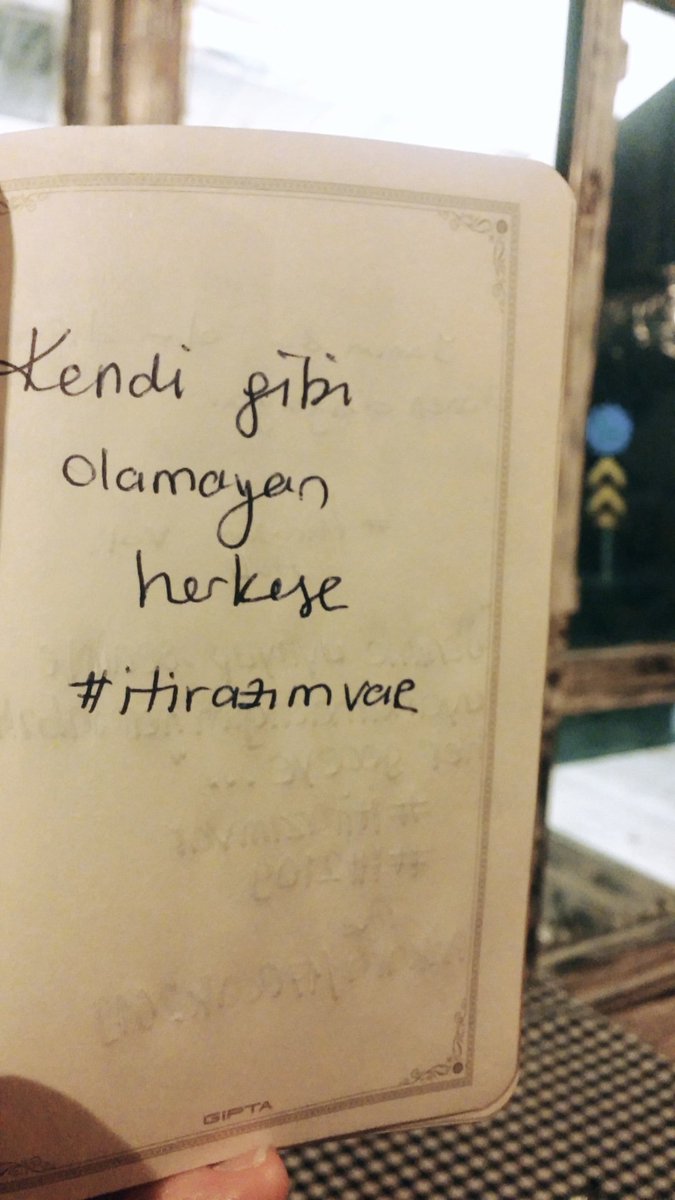 Kendi gibi
olamayan
herkese
#itirazımvar
GIPTA